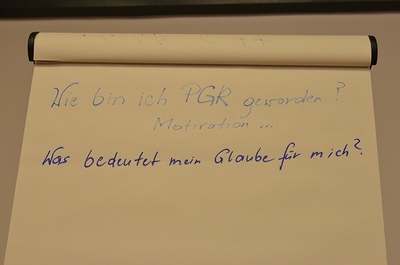 Wie bin ich PGR geworden?
Motivation...
Was bedeutet mein Glaube für mich?